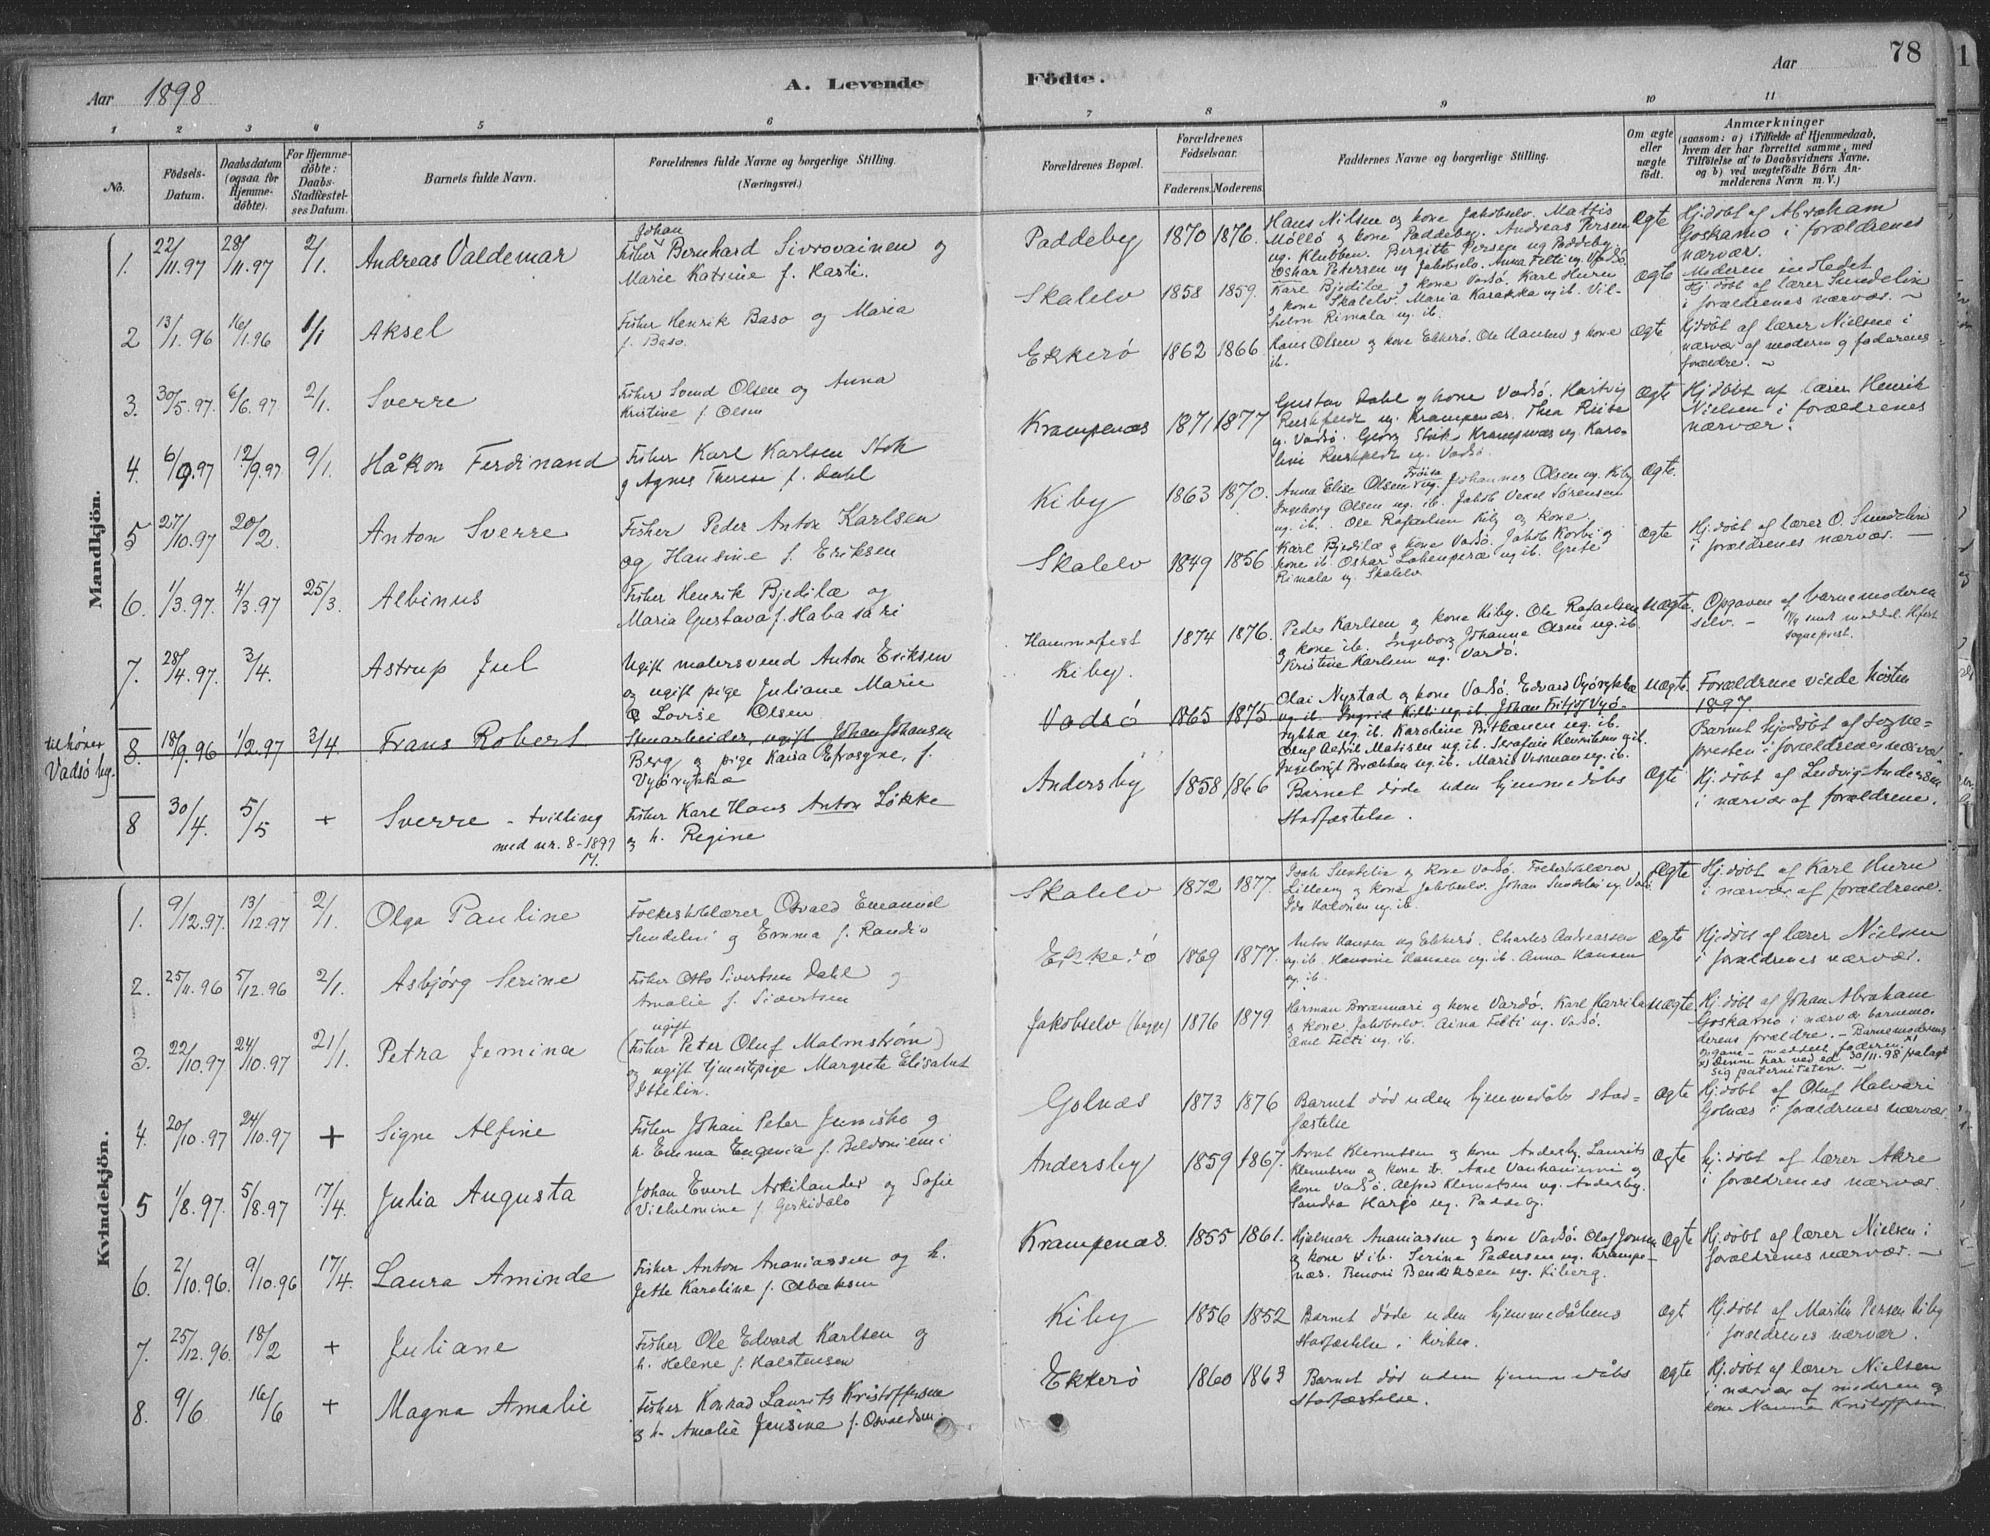 78
Aar 1898
A. Levende Födte.
Aar
1 2 3 4 5 6 7 8 9 10 11
No.
Födsels-Datum.
Daabsdatum (ogsaa for Hjemme-döbte).
For Hjemme-döbte: Daabs-Stadfæstel-ses Datum.
Barnets fulde Navn.
Forældrenes fulde Navne og borgerlige Stilling.
(Næringsvei.)
Forældrenes Bopæl.
Forældrenes Födselsaar.
Faderens. Moderens.
Faddernes Navne og borgerlige Stilling.
Om ægte eller uægte födt.
Anmærkninger
(saasom: a) i Tilfælde af Hjemmedaab,
hvem der har forrettet samme, med
Tilföielse af to Daabsvidners Navne.
og b) ved uægtefödte Börn An-
melderens Navn m. V.)
Mandkjön.
1. 22/11.97 28/11.97 2/1. Andreas Valdemar
Johan
Fisker Bernhard Sivrovainen og
Marie Katrine f. Rasti.
Paddeby 1870 1876.
Hans Nilsen og kone Jakobselv. Mattis
Möllö og kone Paddeby. Andreas Persen
ug. Klubben. Birgitte Persen ug Paddeby
Oskar Petersen ug Jakobselv. Anna Felti ug. Vadsö.
Ægte
Hj.döbt af Abraham
Goskamo i forældrenes
nærvær.
Moderen indledet
2 13/1.96 16/1.96 1/1 Aksel
Fisker Henrik Baso og Maria
f. Baso.
Skalelv 1858 1859.
Karl Bjedilæ og kone Vadsö. Karl Huru
og kone Skalelv. Maria Karakka ug ib. Vil-
Rimala ug. ib.
Ægte
Hj. döbt af lærer Sundelin
i forældrenes nærvær. –
3. 30/5.97. 6/6.97 2/1. Sverre
Fisker Svend Olsen og Anna
Kristine f. Olsen
Ekkerö 1862 1866
Hans Olsen og kone Ekkerö. Ole Hansen og kone
ib.
Ægte
Hj.döbt af lærer Nielsen i
nærvær af moderen og faderens
forældre. –
4. 6/9.97 12/9.97 9/1. Håkon Ferdinand
Fisker Karl Karlsen Stok
og Agnes Therese f. Dahl
Krampenæs 1871 1877
Gustav Dahl og kone Vadsö. Hartvig
ug. Krampenæs. Thea
ug. Vadsö. Georg Stok Krampenæs ug. Karo-
line ug. Vadsö.
Ægte
Hj.döbt af lærer Henrik
Nielsen i forældrenes
nærvær.
5 27/10.97 20/2. Anton Sverre
Fisker Peder Anton Karlsen
og Hansine f. Eriksen
Kiby 1863 1870.
Anna Elise Olsen ug. Johannes Olsen ug. Kiby
Ingeborg Olsen ug. ib. Jakob Vexel Sörensen
ug. ib. Ole Rafaelsen Kiby og kone
Ægte.
6. 1/3.97. 4/3.97 25/3. Albinus
Fisker Henrik Bjedilæ og
Maria Gustava f. Habasari
Skalelv 1849 1856
Karl Bjedilæ og kone Vadsö. Jakob Korbi og
kone ib. Oskar ug ib. Grete
Rimala ug. Skalelv
Ægte
Hj.döbt af lærer O. Sundelin
i forældrenes nærvær. –
7. 28/4.97. 3/4. Astrup Jul
Ugift malersvend Anton Eriksen
og ugift pige Juliane Marie
Lovise Olsen
Hammerfest
Kiby.
1874 1876.
Peder Karlsen og kone Kiby. Ole Rafaelsen
og kone ib. Ingeborg Johanne Olsen ug. ib
Kristine Karlsen ug. Vardö.
Uægte.
Opgaven af barnemoderen
selv. –
sogneprest.
tilhører
Vadsö by.
8. 18/9.96 1/2.97 3/4. Frans Robert
Stenarbeider, ugift Johan Johansen
Berg og pige Kaisa Efrosyne, f.
Vyörykkæ
Vadsö 1865 1875
Olai Nystad og kone Vadsö. Edvard Vyörykkæ
ug. ib. Ingrid ug. ib. Johan Vyö-
rykkæ ug. ib. Karoline ug. ib.
Matisen ug. ib. Serafine Henriksen ug. ib.
Ingeborg ug. ib. Marie ug. ib.
Uægte.
Forældrene viede hösten
1897.
Barnet hj.döbt af sogne-
presten i forældrenes nærvær
8 30/4. 5/5 + Sverre – tvilling
med nr. 8 - 1899
Fisker Karl Hans Anton Lökke
og h. Regine
Andersby 1858 1866
Barnet döde uden hjemmedåbs
Stadfæstelse.
Ægte
Hj. döbt af Ludvig Andersen
i nærvær af forældrene.
Kvindekjön.
1. 9/12.97. 13/12.97 2/1. Olga Pauline
Folkeskolelærer Osvald Emanuel
Sundelin og Emma f. Randio
Skalelv 1872 1877.
Isak Sundelin og kone Vadsö. Folkeskolelærer
Lilleeng og kone Jakobselv. Johan Sundelin ug. Vadsö
Ida ug. ib.
Ægte
Hj.döbt af Karl Huru
i nærvær af forældrene.
2. 25/11.96 5/12.96 2/1. Asbjörg Serine
Fisker Otto Sivertsen Dahl og
Amalie f. Sivertsen
Ekkerö 1869 1877.
Anton Hansen ug Ekkerö. Charles Andreassen
ug. ib. Hansine Hansen ug. ib. Anna Hansen
ug. ib.
Ægte
Hj.döbt af lærer Nielsen
i forældrenes nærvær.
3. 22/10.97 24/10.97 21/1. Petra Jemina
ugift
(Fisker Peter Oluf Malmström)
og ugift tjenestepige Margrete Elisabet
Ittelin.
Jakobselv (begge) 1876 1879
Herman og kone Vardö. Karl
og kone Jakobselv. Aina Felti ug. Vadsö.
Axel Felti ug. ib.
Uægte
Hj. döbt af Johan Abraham
Goskamo i nærvær barnemo-
derens forældre. – Barnemoderens
opgave – meddelt faderen. x)
x) Denne har ved ed 30/11.98 fralagt
sig paterniteten. –
4. 20/10.97 24/10.97 + Signe Alfine
Fisker Johan Peter Junisko og
h. Emma Eugenia f. Beldoniemi
Golnæs 1873 1876
Barnet död uden hjemmedåbs stad-
fæstelse
Ægte
Hj.döbt af Oluf Halvari
Golnæs i forældrenes nærvær
5 1/8.97. 5/8.97 17/4. Julia Augusta
Johan Evert Arkilander og Sofie
Vilhelmine f.
Andersby 1859 1867.
Arnt Klemetsen og kone Andersby. Laurits
Klemetsen og kone ib. Axel Vanhaniemi og
kone Vadsö. Alfred Klemetsen ug. Andersby.
Sandra Harjo ug. Paddeby.
Ægte
hj. döbt af lærer Akre
i forældrenes nærvær.
6. 2/10.96. 9/10.96 17/4. Laura Aminde
Fisker Anton Ananiassen og h.
Jette Karoline f.
Krampenæs. 1855 1861.
Hjalmar Ananiassen og kone Vadsö. Olaf Jensen
og kone ib. Serine Pedersen ug. Krampe-
næs. Benoni Bendiksen ug. Kiberg.
Ægte
Hj.döbt af lærer Nielsen i
forældrenes nærvær. –
7. 25/12.96. 18/2 + Juliane
Fisker Ole Edvard Karlsen og
h. Helene f. Halstensen
Kiby 1856 1852
Barnet döde uden hjemmedåbens
Stadfæstelse i kirken.
Ægt
Hj.döbt af Martin Persen Kiby
i forældrenes nærvær.
8. 9/6 16/6 + Magna Amalie
Fisker Konrad Laurits Kristoffersen
og h. Amalie Jensine f. Osvaldsen.
Ekkerö 1860 1863
Barnet död uden hjemmedåbs
Stadfæstelse.
Ægte
Hj.döbt af lærer Nielsen
i nærvær af moderen og
kone Nanna Kristoffersen.